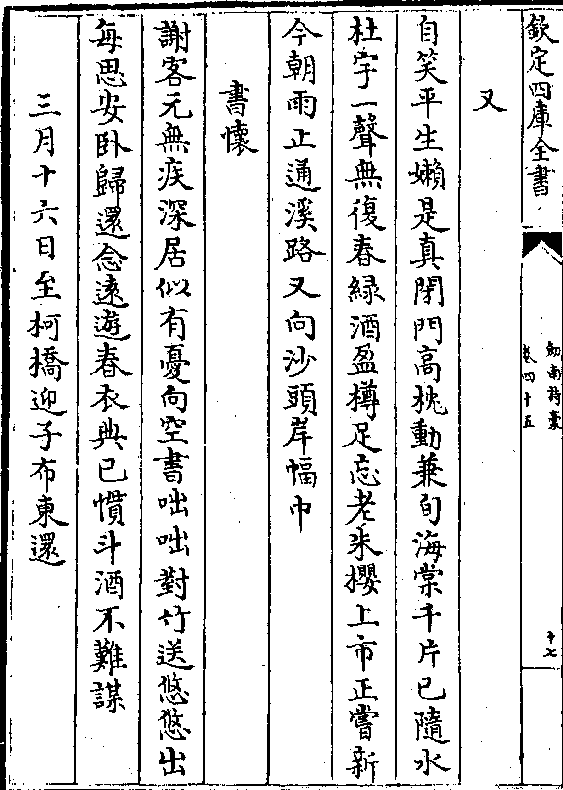 欽定四庫全書
劒南詩稾
卷四十五
十七
又
自笑平生嬾是真閉門高枕動兼旬海棠千片已隨水
杜宇一聲無復春緑酒盈樽足忘老朱櫻上市正嘗新
今朝雨止通溪路又向沙頭岸幅巾
書懷
謝客元無疾深居似有憂向空書咄咄對竹送悠悠出
每思安卧歸還念遠遊春衣典已慣斗酒不難謀
三月十六日至柯橋迎子布東還